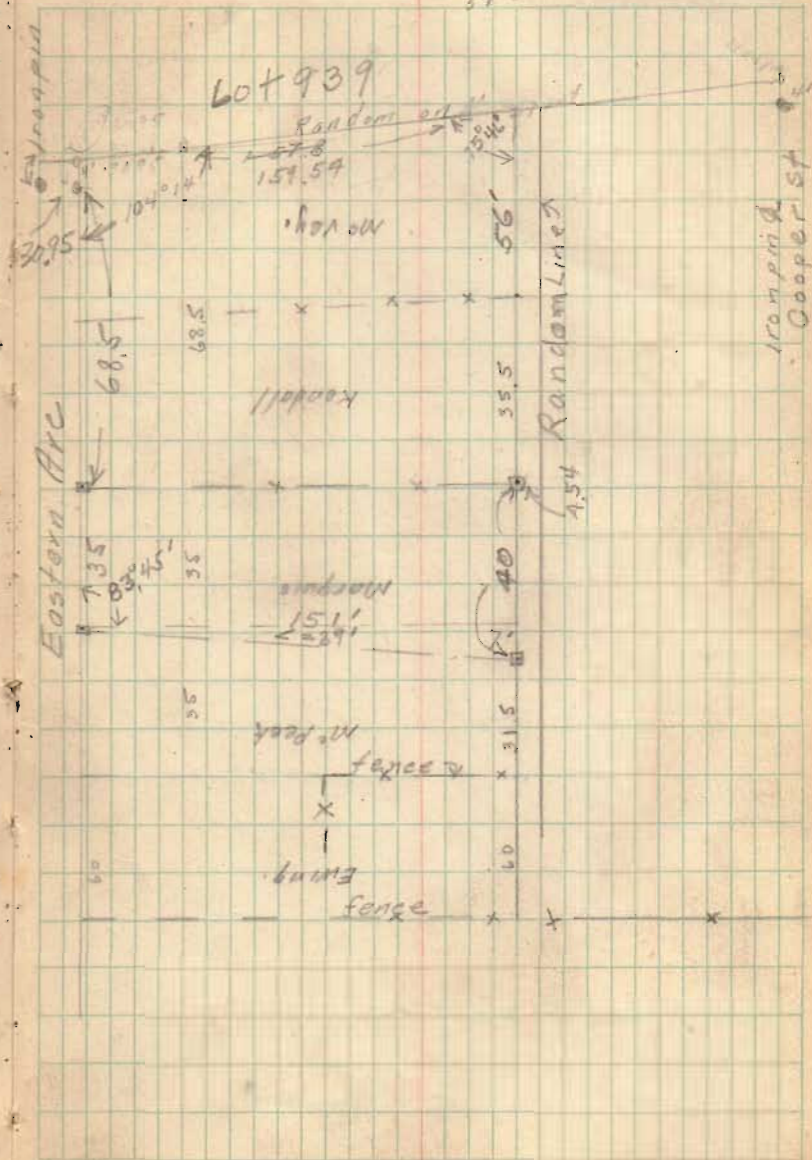 60+939
E. Ironpin
Random
157.8
159.54
75°46'
104°14'
30.95
McVay.
56'
Random Line
Ironpin @
Cooper St
68.5
68.5
35.5
Kendall
Eastern Ave
4.54
35
83°45'
35
40
Marquis
151'
=29'
2'
35
McPeek
31.5
fence
60
Ewing.
60
fence